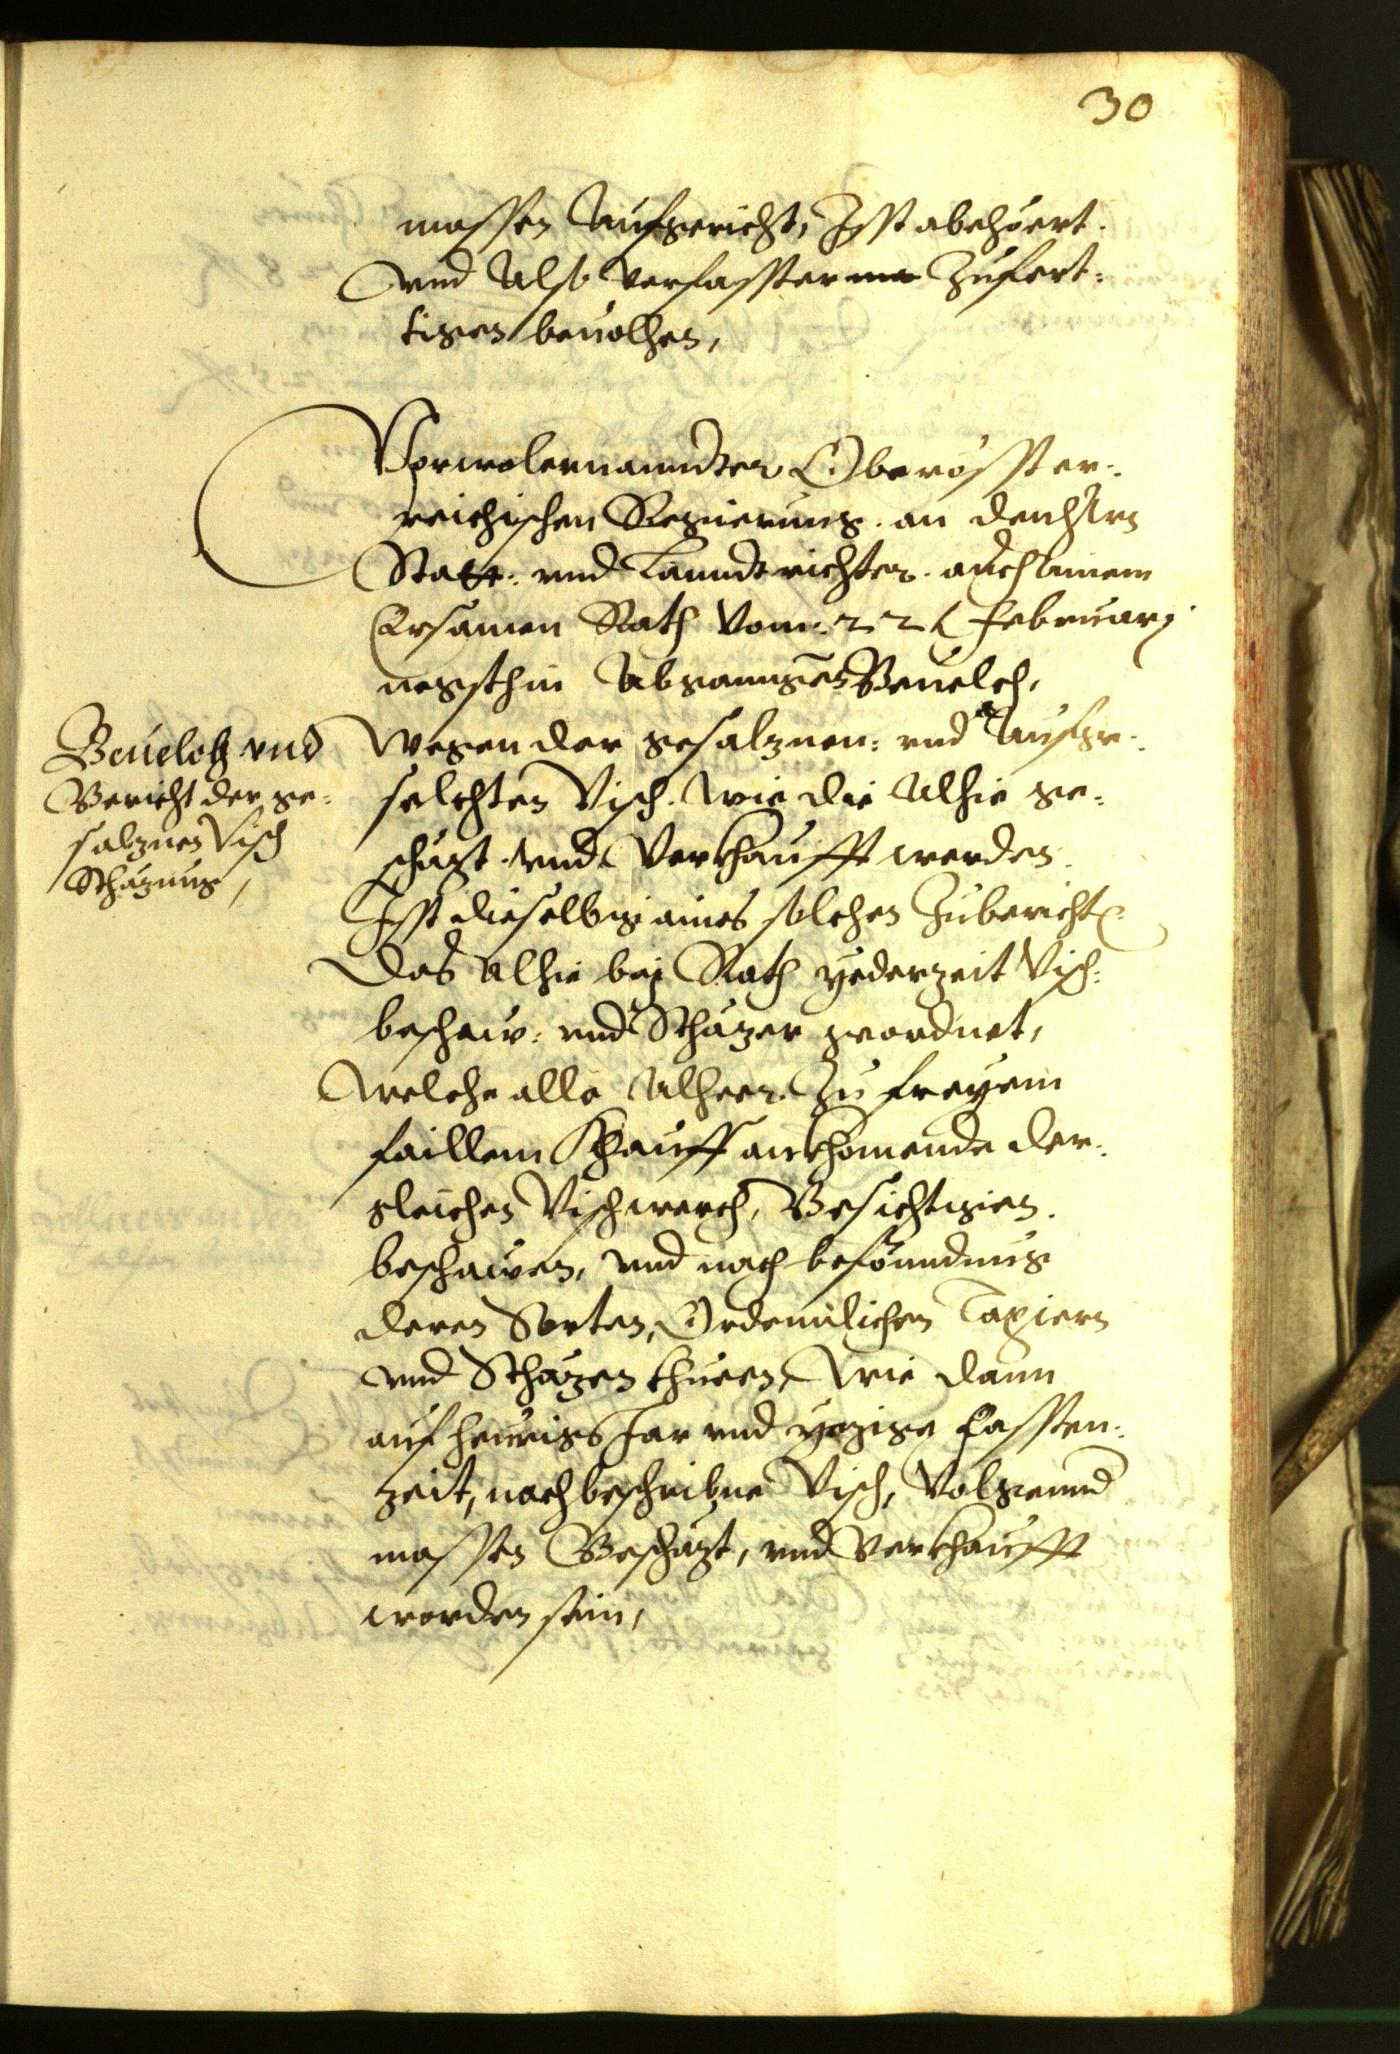 30
massen Aufgericht, Isst abehöert.
vnd Also verfasster Zufert:
tigen beuolhen,
Vorwolernanndter Oberösster:
reichischen Regierung. an den Hrn
Statt: vnd Lanndtrichter. auch ainem
Ersamen Rath Vom 22 februarj
negsthin Abganngen Beuelch,
Wegen der gesalznen: vnd Aufge:
selchten Visch. wie die Alhie ge:
schäzt vnd Verkhaufft werden.
Isst dieselbig aines solchen Zubericht
Das Alhie bej Rath yederzeit Visch:
beschaw: vnd Schäzer geordnet,
welche alle Alheer. Zu freyem
faillem Khauff ankhomende der:
gleichen Vischwerch, Besichtigen.
beschawen, vnd nach befünndnus
deren Sorten, Ordennlichen Taxiern
vnd Schäzen thueen, Wie dann
auf heurigs Jar vnd yezige Fassten:
zeit, nachbeschribne Visch, Volgennd
massen Beschäzt, vnd verkhaufft
worden sein,
Beuelch vnd
Bericht der ge:
salznen Visch
Schäzung,